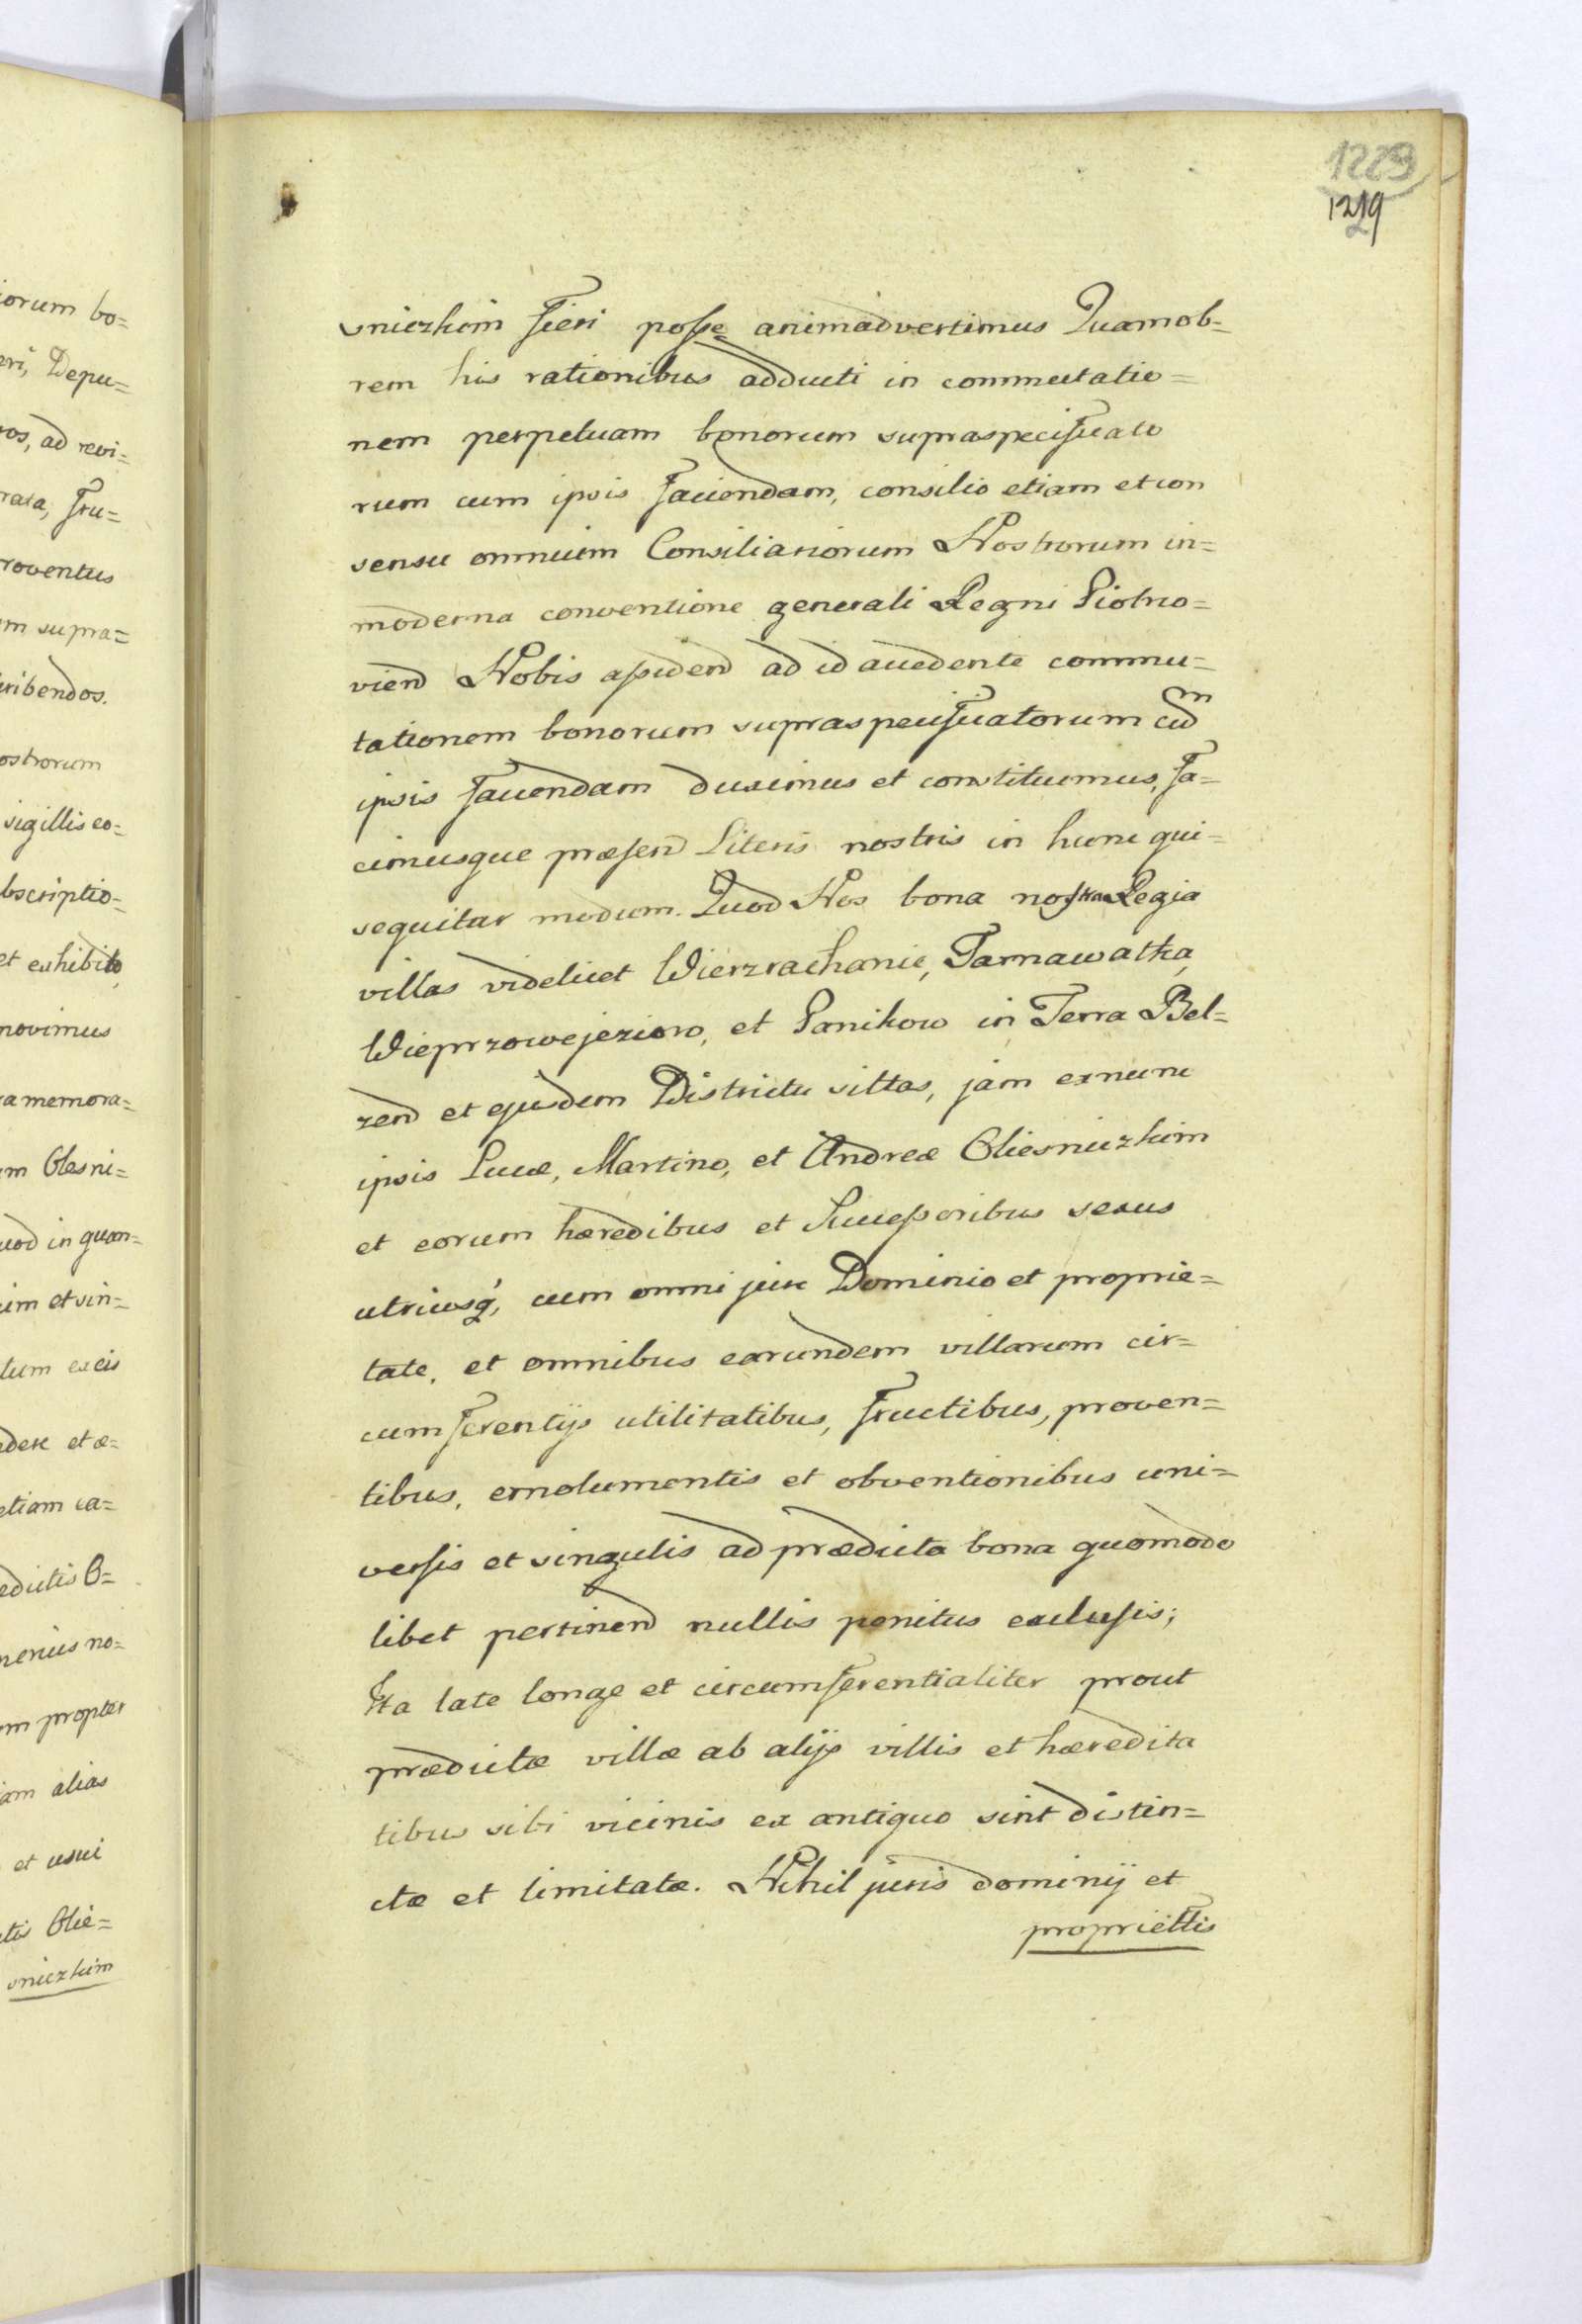 iorum bo=
eri, Depu=
ros, ad revi=
rata, fru=
roventus
m supra=
ribendos.
ostrorum
sigillis eo=
bscriptio=
et exhibito,
novimus
ra memora=
m Olesni=
uod in quan=
im et sin=
lum ex eis
dere et æ=
etiam ca=
edictis O=
nerius no=
m propter
iam alias
et usui
tis Olie=
sniczkim
1229
1219
sniczkim fieri posse animadvertimus Quamob=
rem his rationibus adducti in commutatio=
nem perpetuam bonorum supraspecificato
rum cum ipsis faciendam, consilio etiam et con
sensu omnium Consiliariorum Nostrorum in=
moderna conventione generali Regni Piotrco=
vien Nobis assiden ad id accedente commu=
tationem bonorum supraspecificatorum cum
ipsis faciendam duximus et constituimus, fa=
cimusque præsen Literis nostris in hunc qui=
sequitur modum. Quod Nos bona nostra Regia
villas videlicet Wierzrachanie, Tarnawatka,
Wieprzowejezioro, et Panikow in Terra Bel=
zen et ejusdem Districtu sittas, jam exnunc
ipsis Lucæ, Martino, et Andreæ Oliesniczkim
et eorum hæredibus et Successoribus sexus
utriusq, cum omni jure Dominio et proprie=
tate, et omnibus earundem villarum cir=
cumferentijs utilitatibus, fructibus, proven=
tibus, emolumentis et obventionibus uni=
versis et singulis ad prædicta bona quomodo
libet pertinen nullis penitus exclusis;
Ita late longe et circumferentialiter prout
prædictæ villæ ab alijs villis et hæredita
tibus sibi vicinis ex antiquo sint distin=
ctæ et limitatæ. Nihil juris dominij et
propriettis